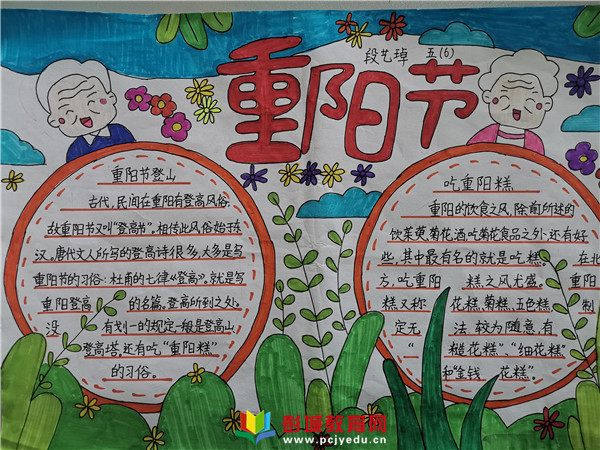 重阳节
段艺璋 五(6)
重阳节登山
古代,民间在重阳有登高风俗,
故重阳节又叫“登高节”。相传此风俗始于东
汉。唐代文人所写的登高诗很多,大多是写
重阳节的习俗:杜甫的七律《登高》,就是写
重阳登高的名篇。登高所到之处,
没有划一的规定一般是登高山,
登高塔。还有吃“重阳糕”
的习俗。
吃重阳糕
重阳的饮食之风,除前所述的
饮茱萸、菊花酒,吃菊花食品之外,还有好
些,其中最有名的就是吃糕。在北
方,吃重阳糕之风尤盛。重阳
糕又称花糕、菊糕、五色糕,制
定无法较为随意,有
“糙花糕”“细花糕”
和“金钱花糕”。
彭城教育网
www.pcjyedu.cn